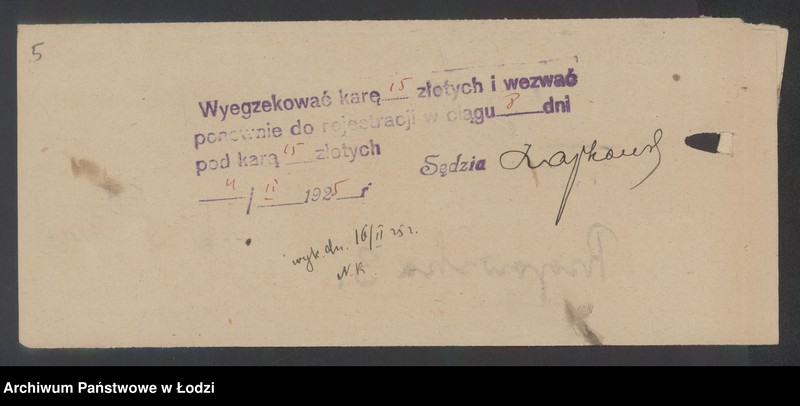 5
Wyegzekować karę 15 złotych i wezwać
ponownie do rejestracji w ciągu 8 dni
pod karą 15 złotych
Sędzia
4/II 1925 r
wyk. dn. 16/II 25 r.
N.K.
Archiwum Państwowe w Łodzi